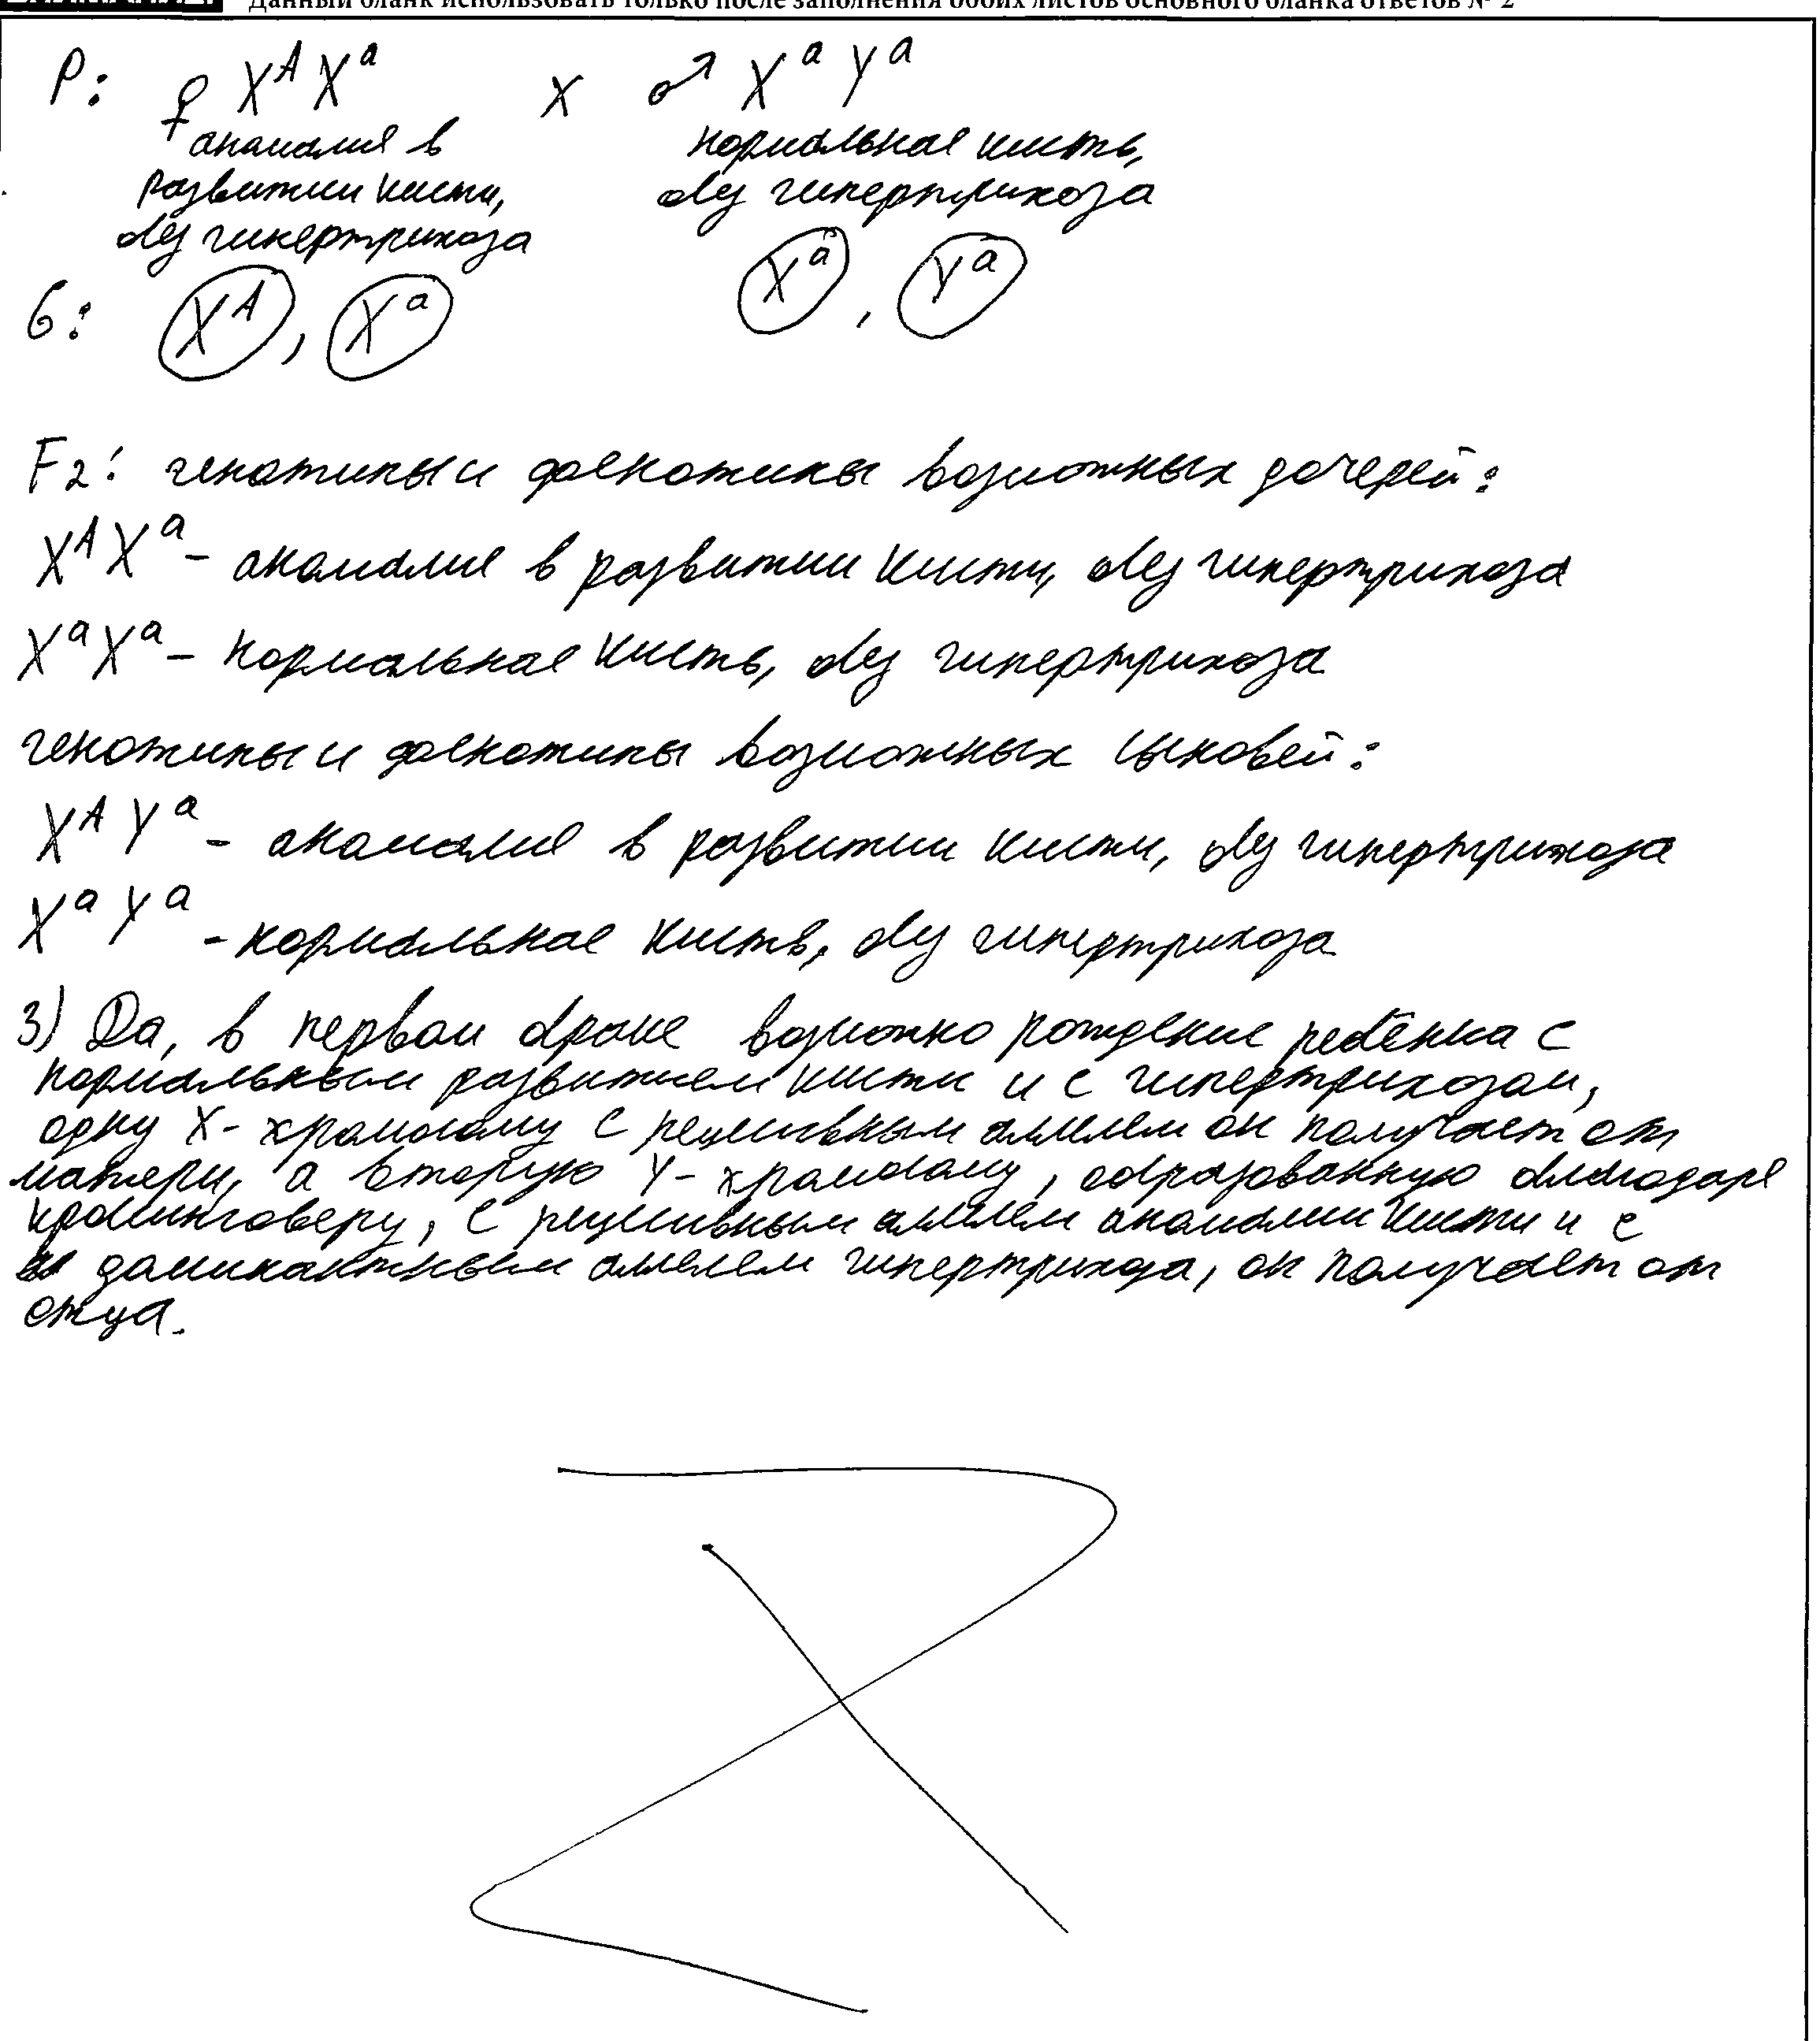 Данный бланк использовать только после заполнения обоих листов основного бланка ответов № 2
P: ♀ X^A X^a x ♂ X^a Y^a
аномалия в нормальная кисть,
развитии кисти, без гипертрихоза
без гипертрихоза
G: X^A, X^a X^a, Y^a
F2: генотипы и фенотипы возможных дочерей:
X^A X^a - аномалия в развитии кисти, без гипертрихоза
X^a X^a - нормальная кисть, без гипертрихоза
генотипы и фенотипы возможных сыновей:
X^A Y^a - аномалия в развитии кисти, без гипертрихоза
X^a Y^a - нормальная кисть, без гипертрихоза
3) Да, в первом браке возможно рождение ребёнка с
нормальным развитием кисти и с гипертрихозом,
одну X-хромосому с рецессивным аллелем он получает от
матери, а вторую Y-хромосому, образованную благодаря
кроссинговеру, с рецессивным аллелем аномалии кисти и с
доминантным аллелем гипертрихоза, он получает от
отца.